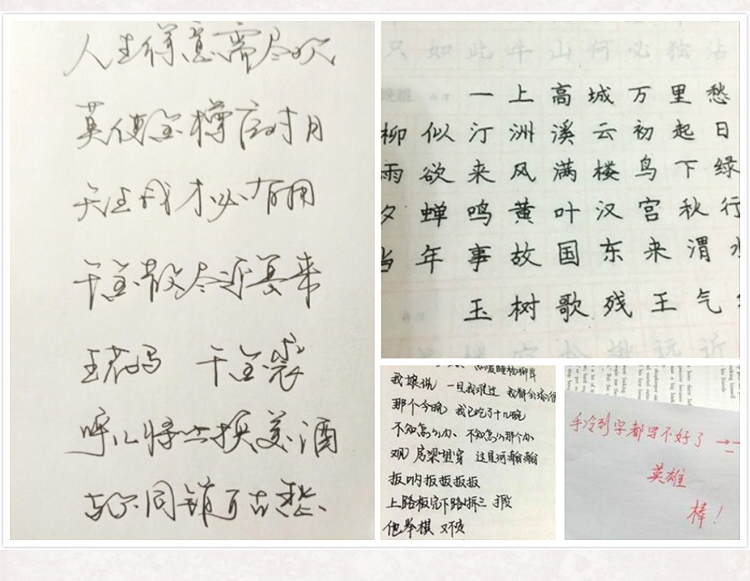 人生得意需尽欢
莫使金樽空对月
天生我才必有用
千金散尽还复来
五花马 千金裘
呼儿将出换美酒
与尔同销万古愁
只如此牛山何必独沾
一上高城万里愁
柳似汀洲溪云初起日
雨欲来风满楼鸟下绿
夕蝉鸣黄叶汉宫秋行
当年事故国东来渭水
玉树歌残王气
我娘说 一旦我难过 我都会给
那个 我已吃了十几碗
不知怎么办、不知怎么那个办
观 房梁望穿 这是河
扳呐扳扳扳扳
上路板完下路拆三
他举棋 又不
手冷到字都写不好了 →_→
英雄
棒！